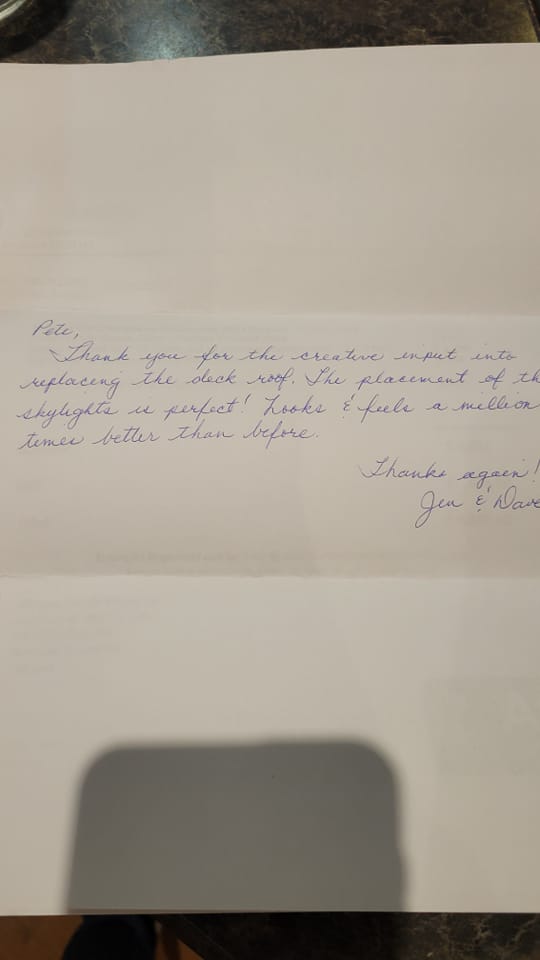 Pete,
Thank you for the creative input into
replacing the deck roof. The placement of th
skylights is perfect! Looks & feels a million
times better than before.
Thanks again!
Jen & Dave